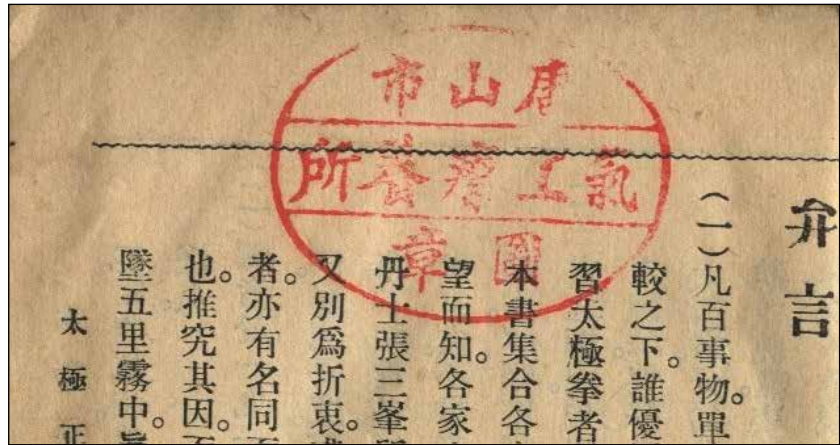 唐山市
氣工療養所
圖章
弁言
(一)凡百事物。單
較之下。誰優
習太極拳者
本書集合各
望而知。各家
丹士張三峯
又別爲折衷。
者。亦有名同
也。推究其因。
墜五里霧中。
太極正